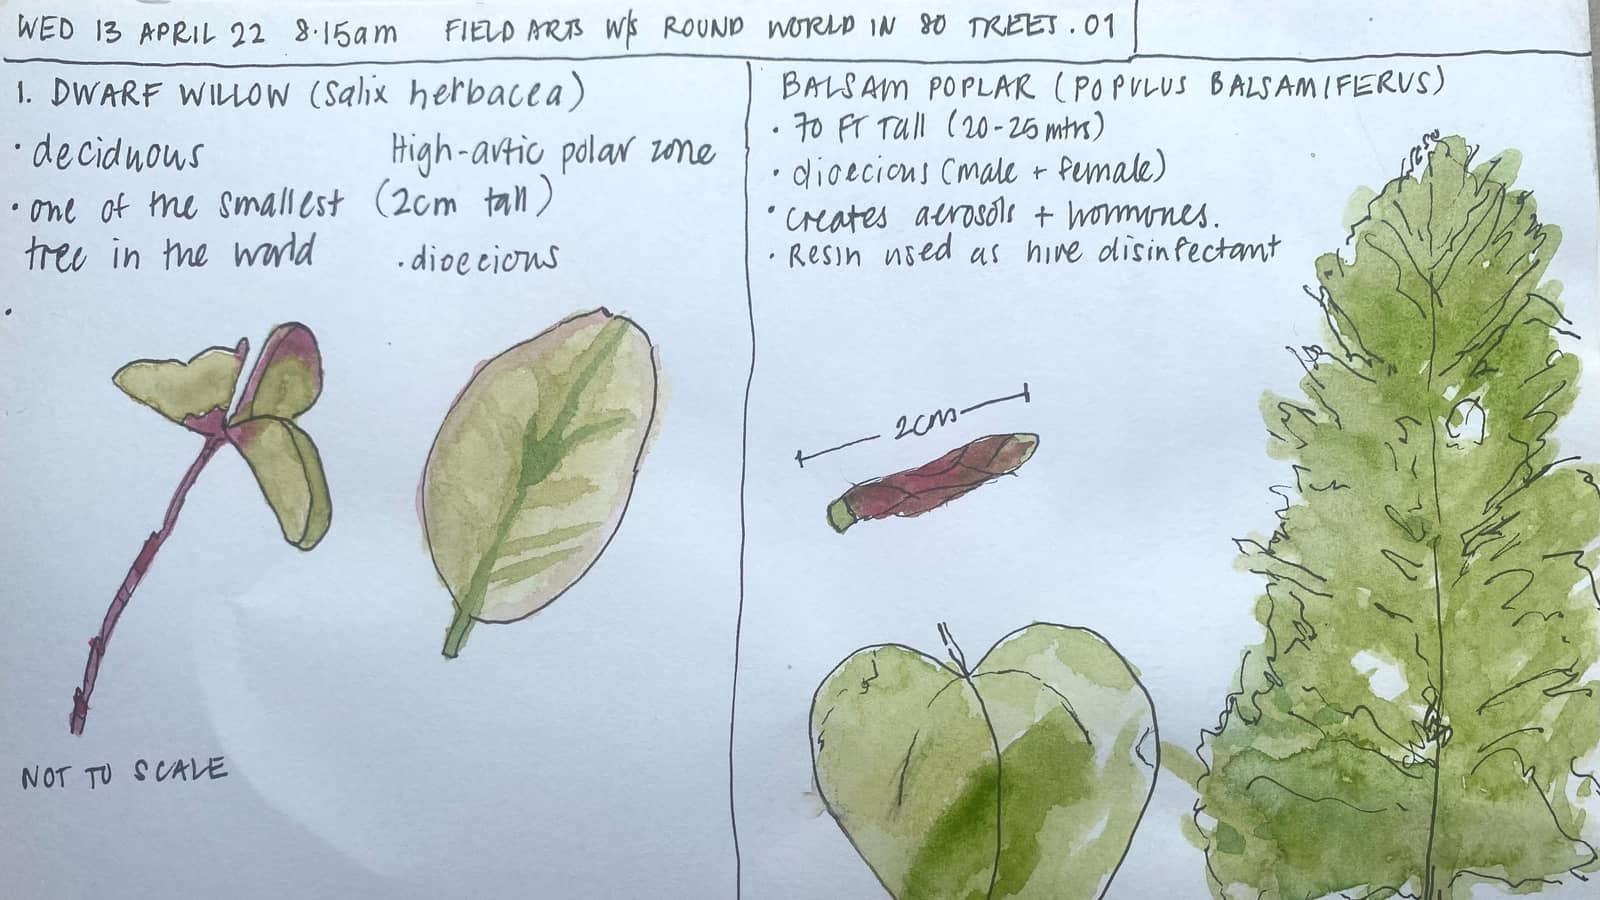 WED 13 APRIL 22 8.15am FIELD ARTS W/S ROUND WORLD IN 80 TREES. 01
1. DWARF WILLOW (Salix herbacea)
• deciduous
• one of the smallest
tree in the world
High-artic polar zone
(2cm tall)
• dioecious
NOT TO SCALE
BALSAM POPLAR (POPULUS BALSAMIFERUS)
• 70 FT Tall (20-25 mtrs)
• dioecious (male + female)
• creates aerosols + hormones.
• Resin used as hive disinfectant
2cm